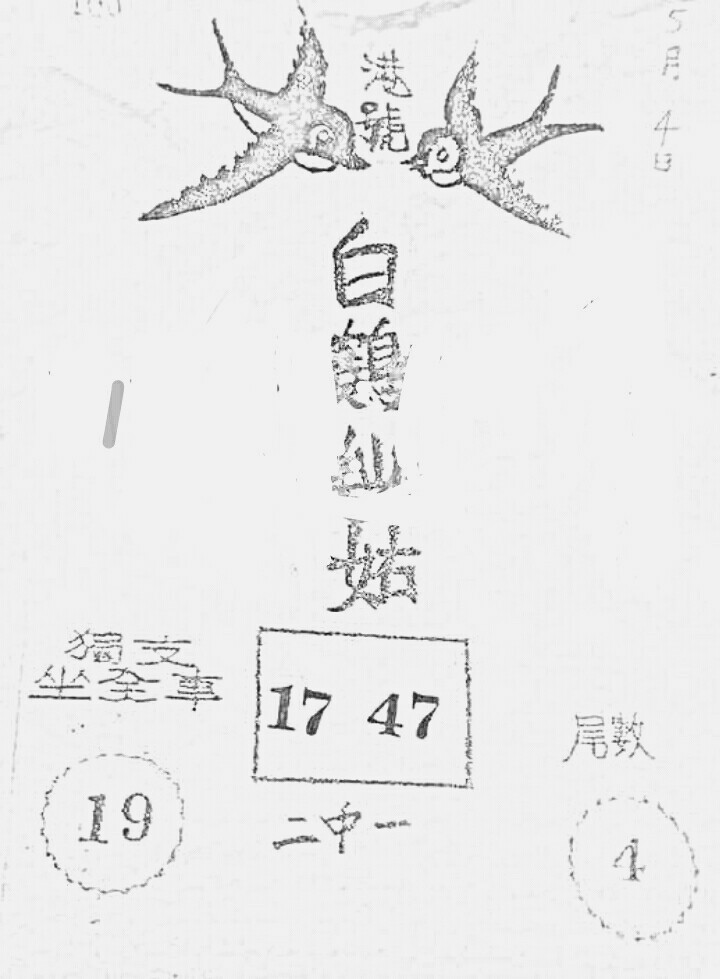 5月4日
港號
白鶴仙姑
獨支
坐全車
19
17 47
二中一
尾數
4